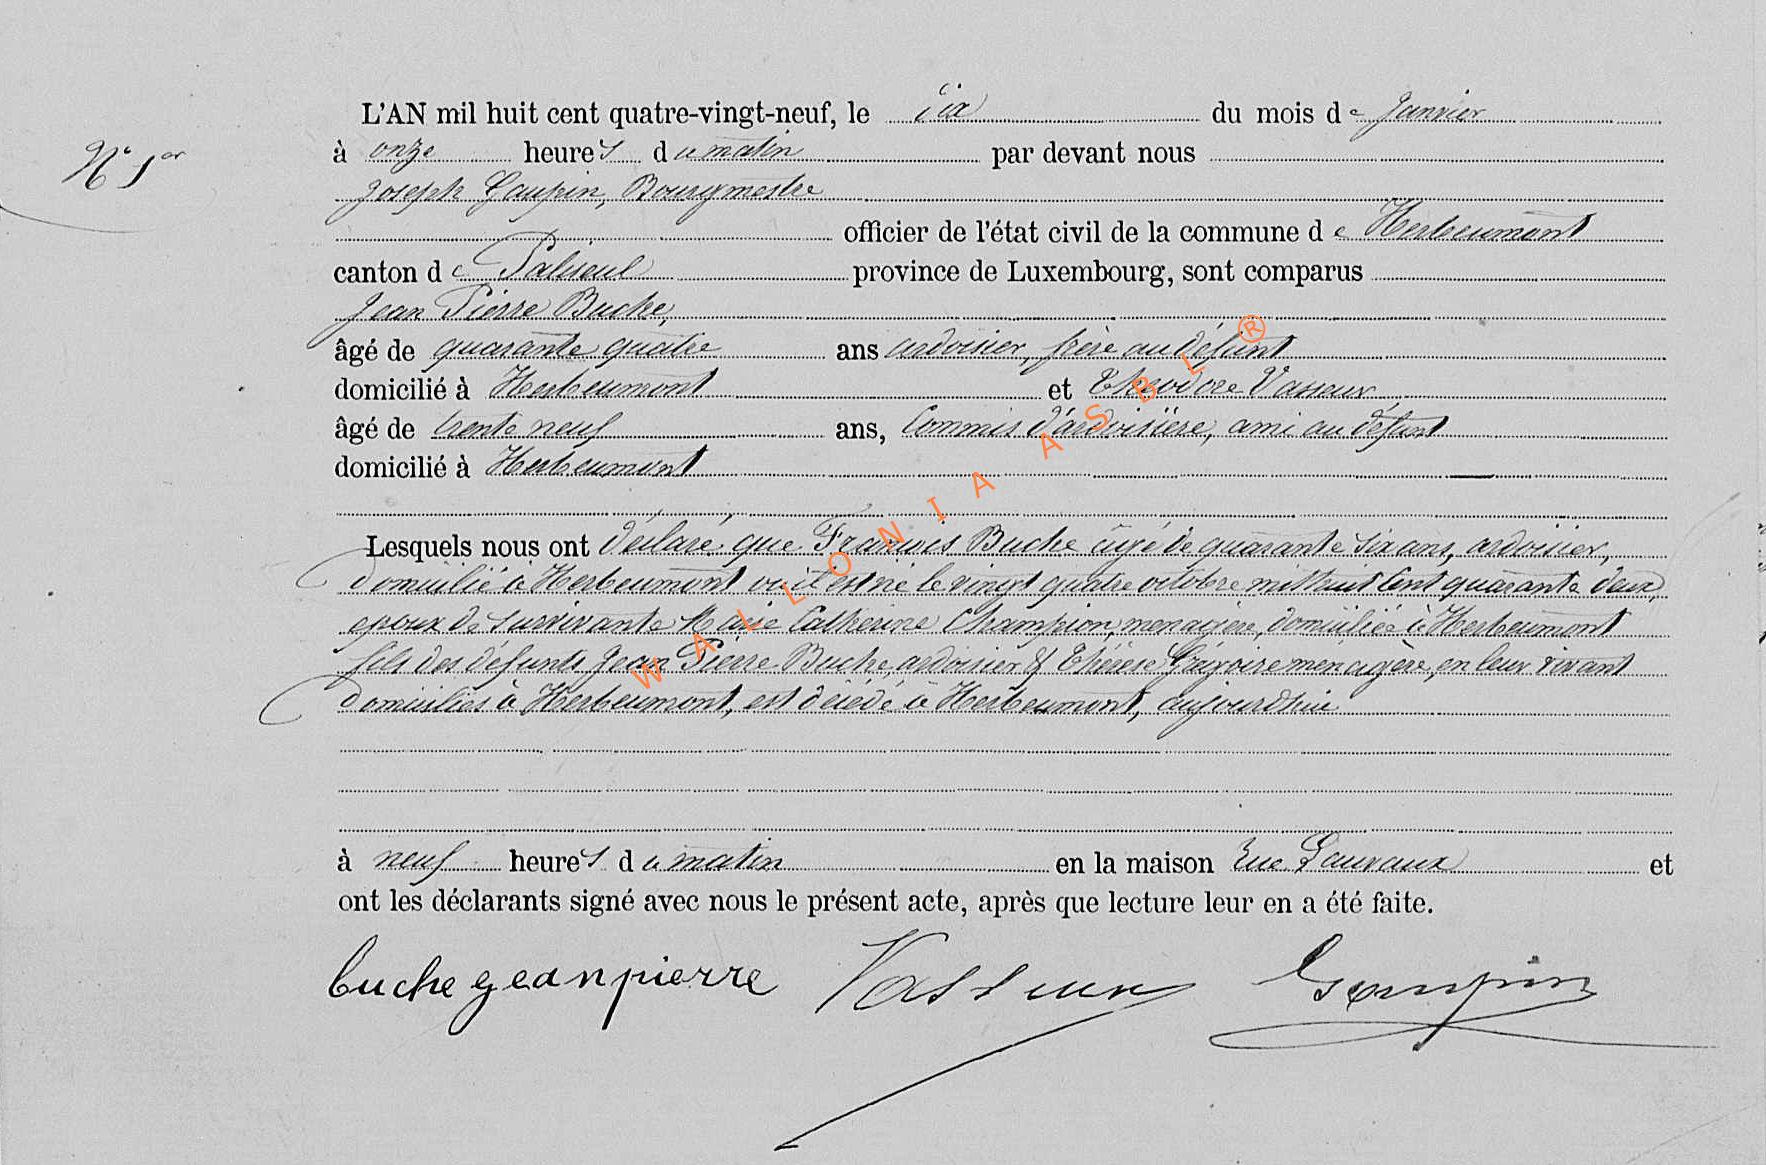 N° 1er
L'AN mil huit cent quatre-vingt-neuf, le six du mois de Janvier
à onze heures du matin par devant nous
Joseph Gaupin, Bourgmestre
officier de l'état civil de la commune de Herbeumont
canton de Paliseul province de Luxembourg, sont comparus
Jean Pierre Buche,
âgé de quarante quatre ans ardoisier, frère au défunt
domicilié à Herbeumont et Théodore Vasseur
âgé de trente neuf ans, Commis d'ardoisière, ami au défunt
domicilié à Herbeumont
Lesquels nous ont déclaré que François Buche âgé de quarante six ans, ardoisier,
domicilié à Herbeumont où il est né le vingt quatre octobre mil huit cent quarante deux,
époux de survivante Marie Catherine Champion, menagère, domiciliée à Herbeumont
fils des défunts Jean Pierre Buche, ardoisier & Thérèse Grégoire menagère, en leur vivant
domiciliés à Herbeumont, est décédé à Herbeumont, aujourdhui
à neuf heures du matin en la maison rue Lauvaux et
ont les déclarants signé avec nous le présent acte, après que lecture leur en a été faite.
buche jeanpierre Vasseur Gaupin
WALLONIA ASBL ®